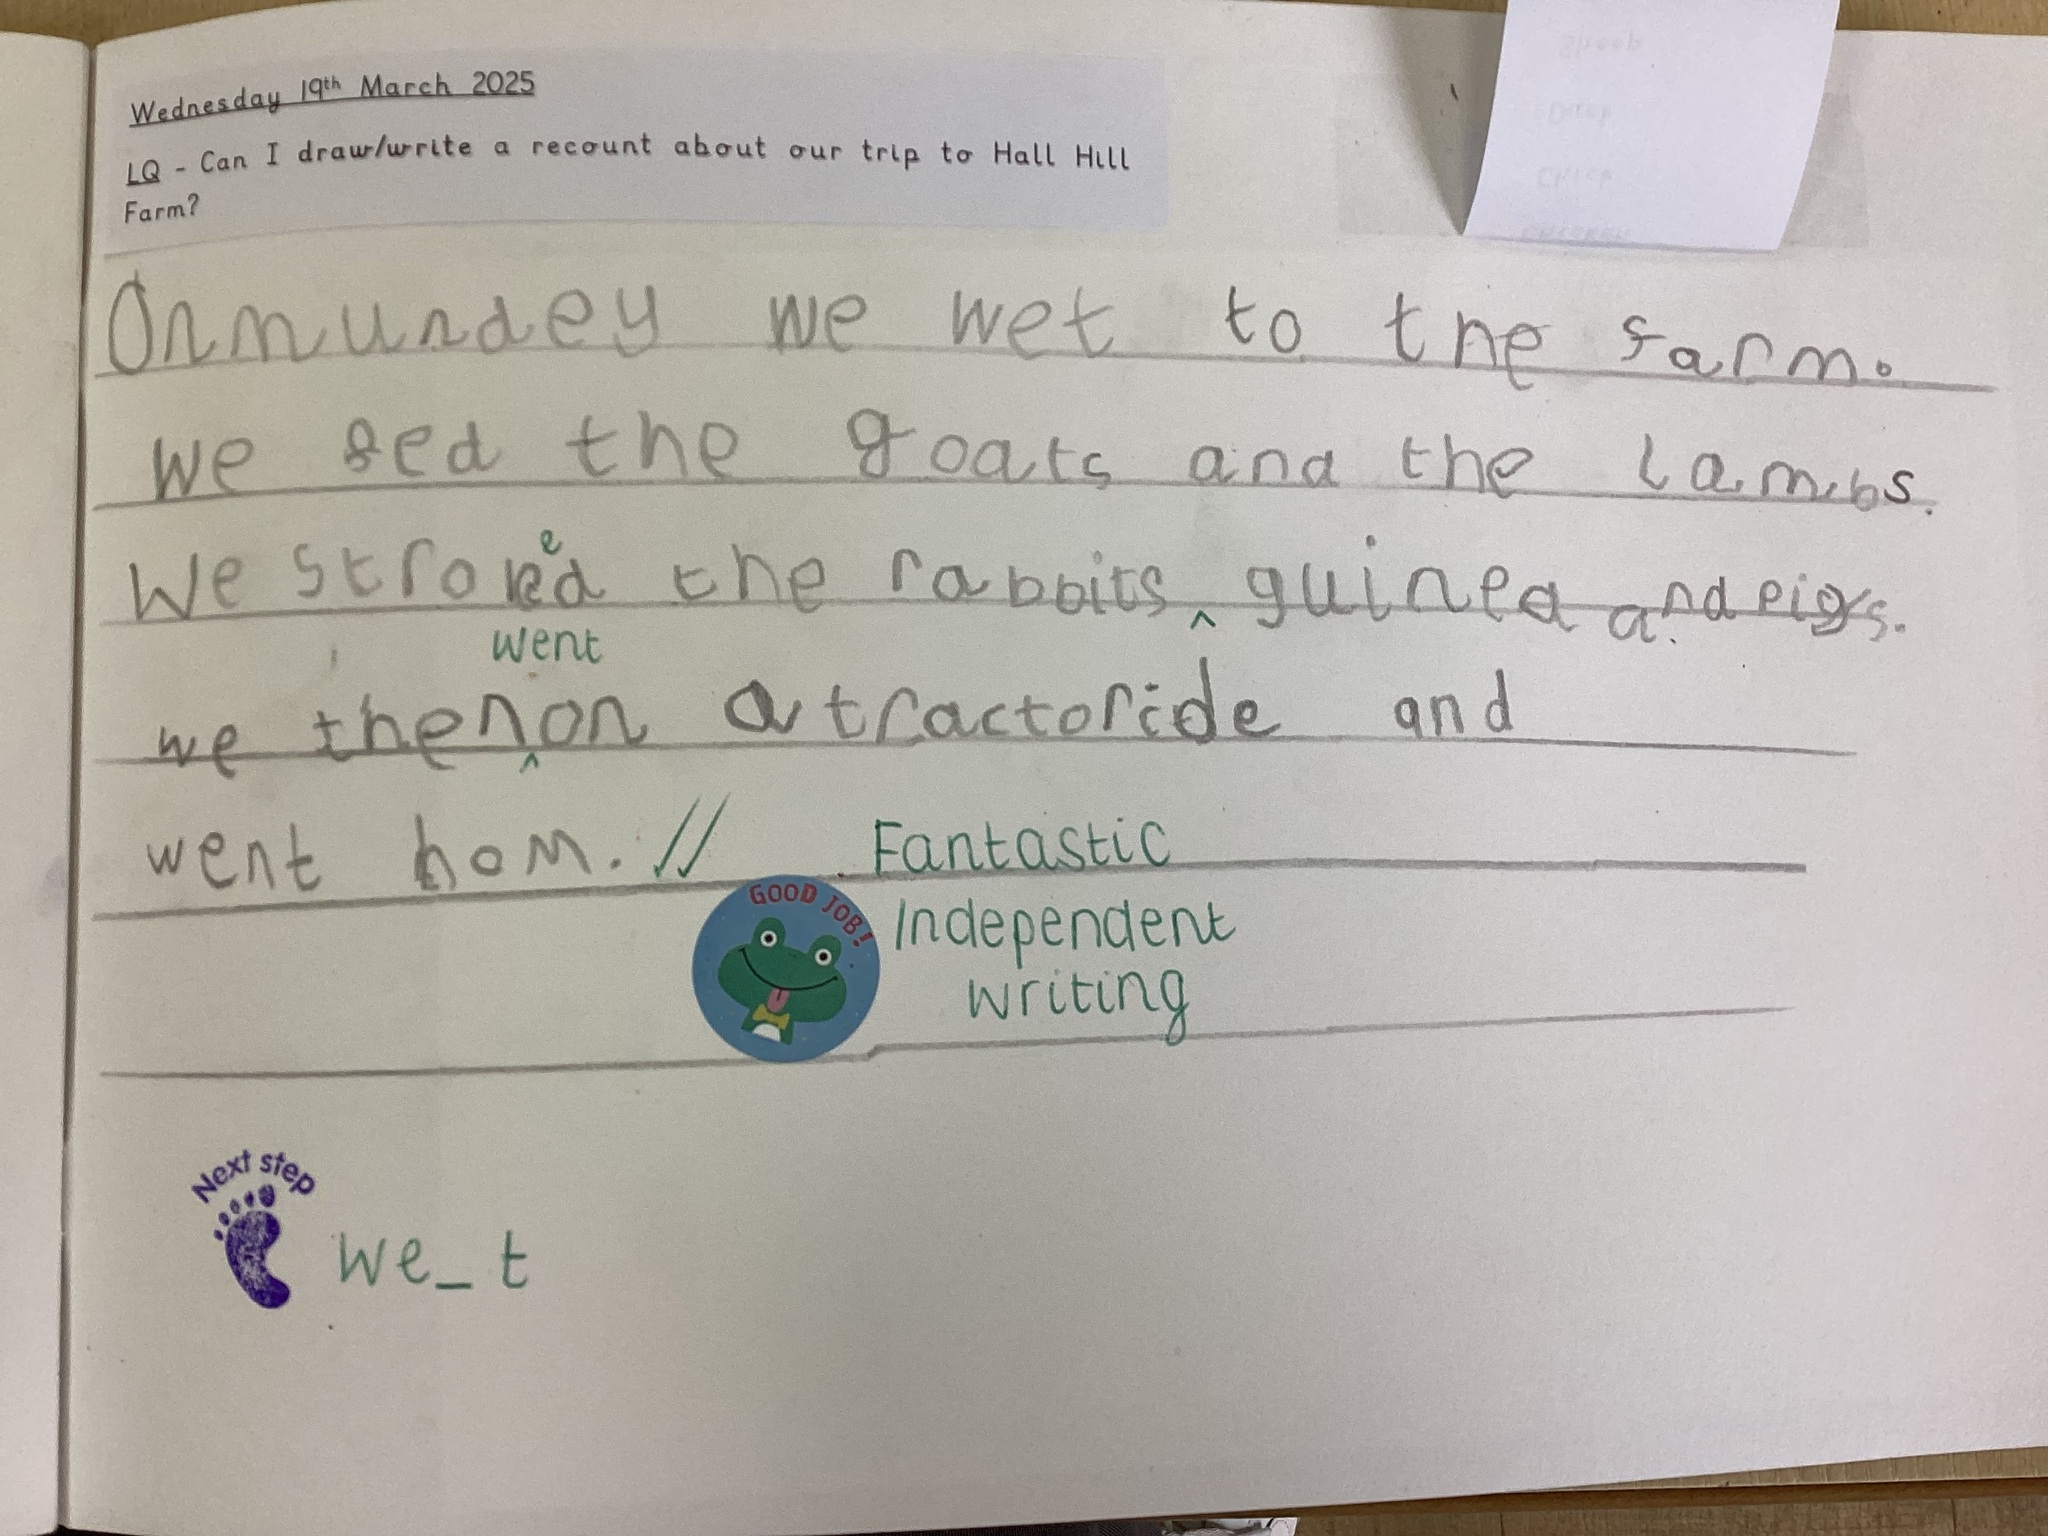 Wednesday 19th March 2025
LQ - Can I draw/write a recount about our trip to Hall Hill
Farm?
Onmundey we wet to the farm.
we fed the goats and the lambs.
e
We stroked the rabbits ^ guinea and pigs.
went
we then ^ on a tractoride and
went hom. //
Fantastic
GOOD JOB!
Independent
writing
Next step
we_t